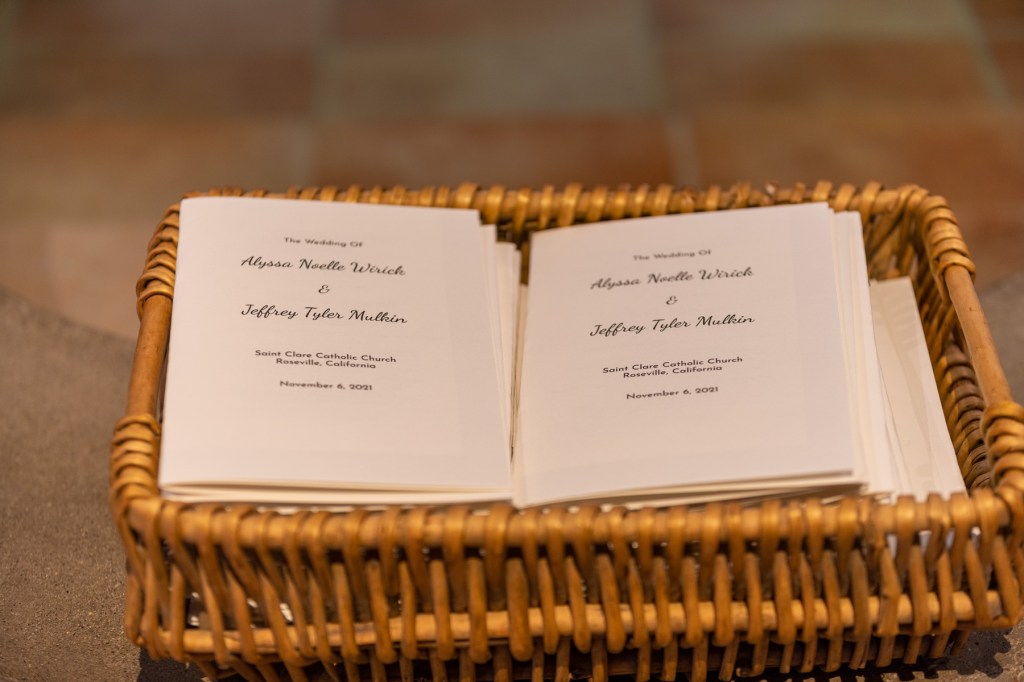 The Wedding Of
Alyssa Noelle Wirick
&
Jeffrey Tyler Mulkin
Saint Clare Catholic Church
Roseville, California
November 6, 2021
The Wedding Of
Alyssa Noelle Wirick
&
Jeffrey Tyler Mulkin
Saint Clare Catholic Church
Roseville, California
November 6, 2021